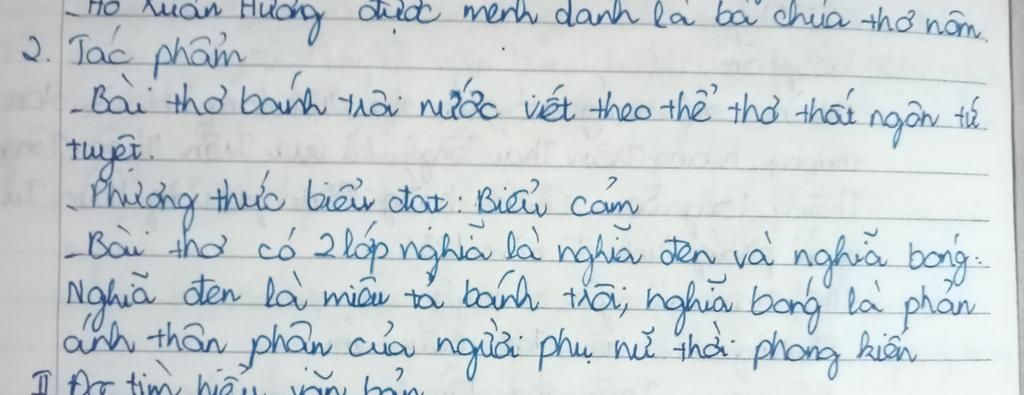 - Hồ Xuân Hương được mệnh danh là bà chúa thơ nôm.
2. Tác phẩm
- Bài thơ bánh trôi nước viết theo thể thơ thất ngôn tứ
tuyệt.
- Phương thức biểu đạt: Biểu cảm
- Bài thơ có 2 lớp nghĩa là nghĩa đen và nghĩa bóng.
Nghĩa đen là miêu tả bánh trôi; nghĩa bóng là phản
ánh thân phận của người phụ nữ thời phong kiến
II Đọc tìm hiểu văn bản